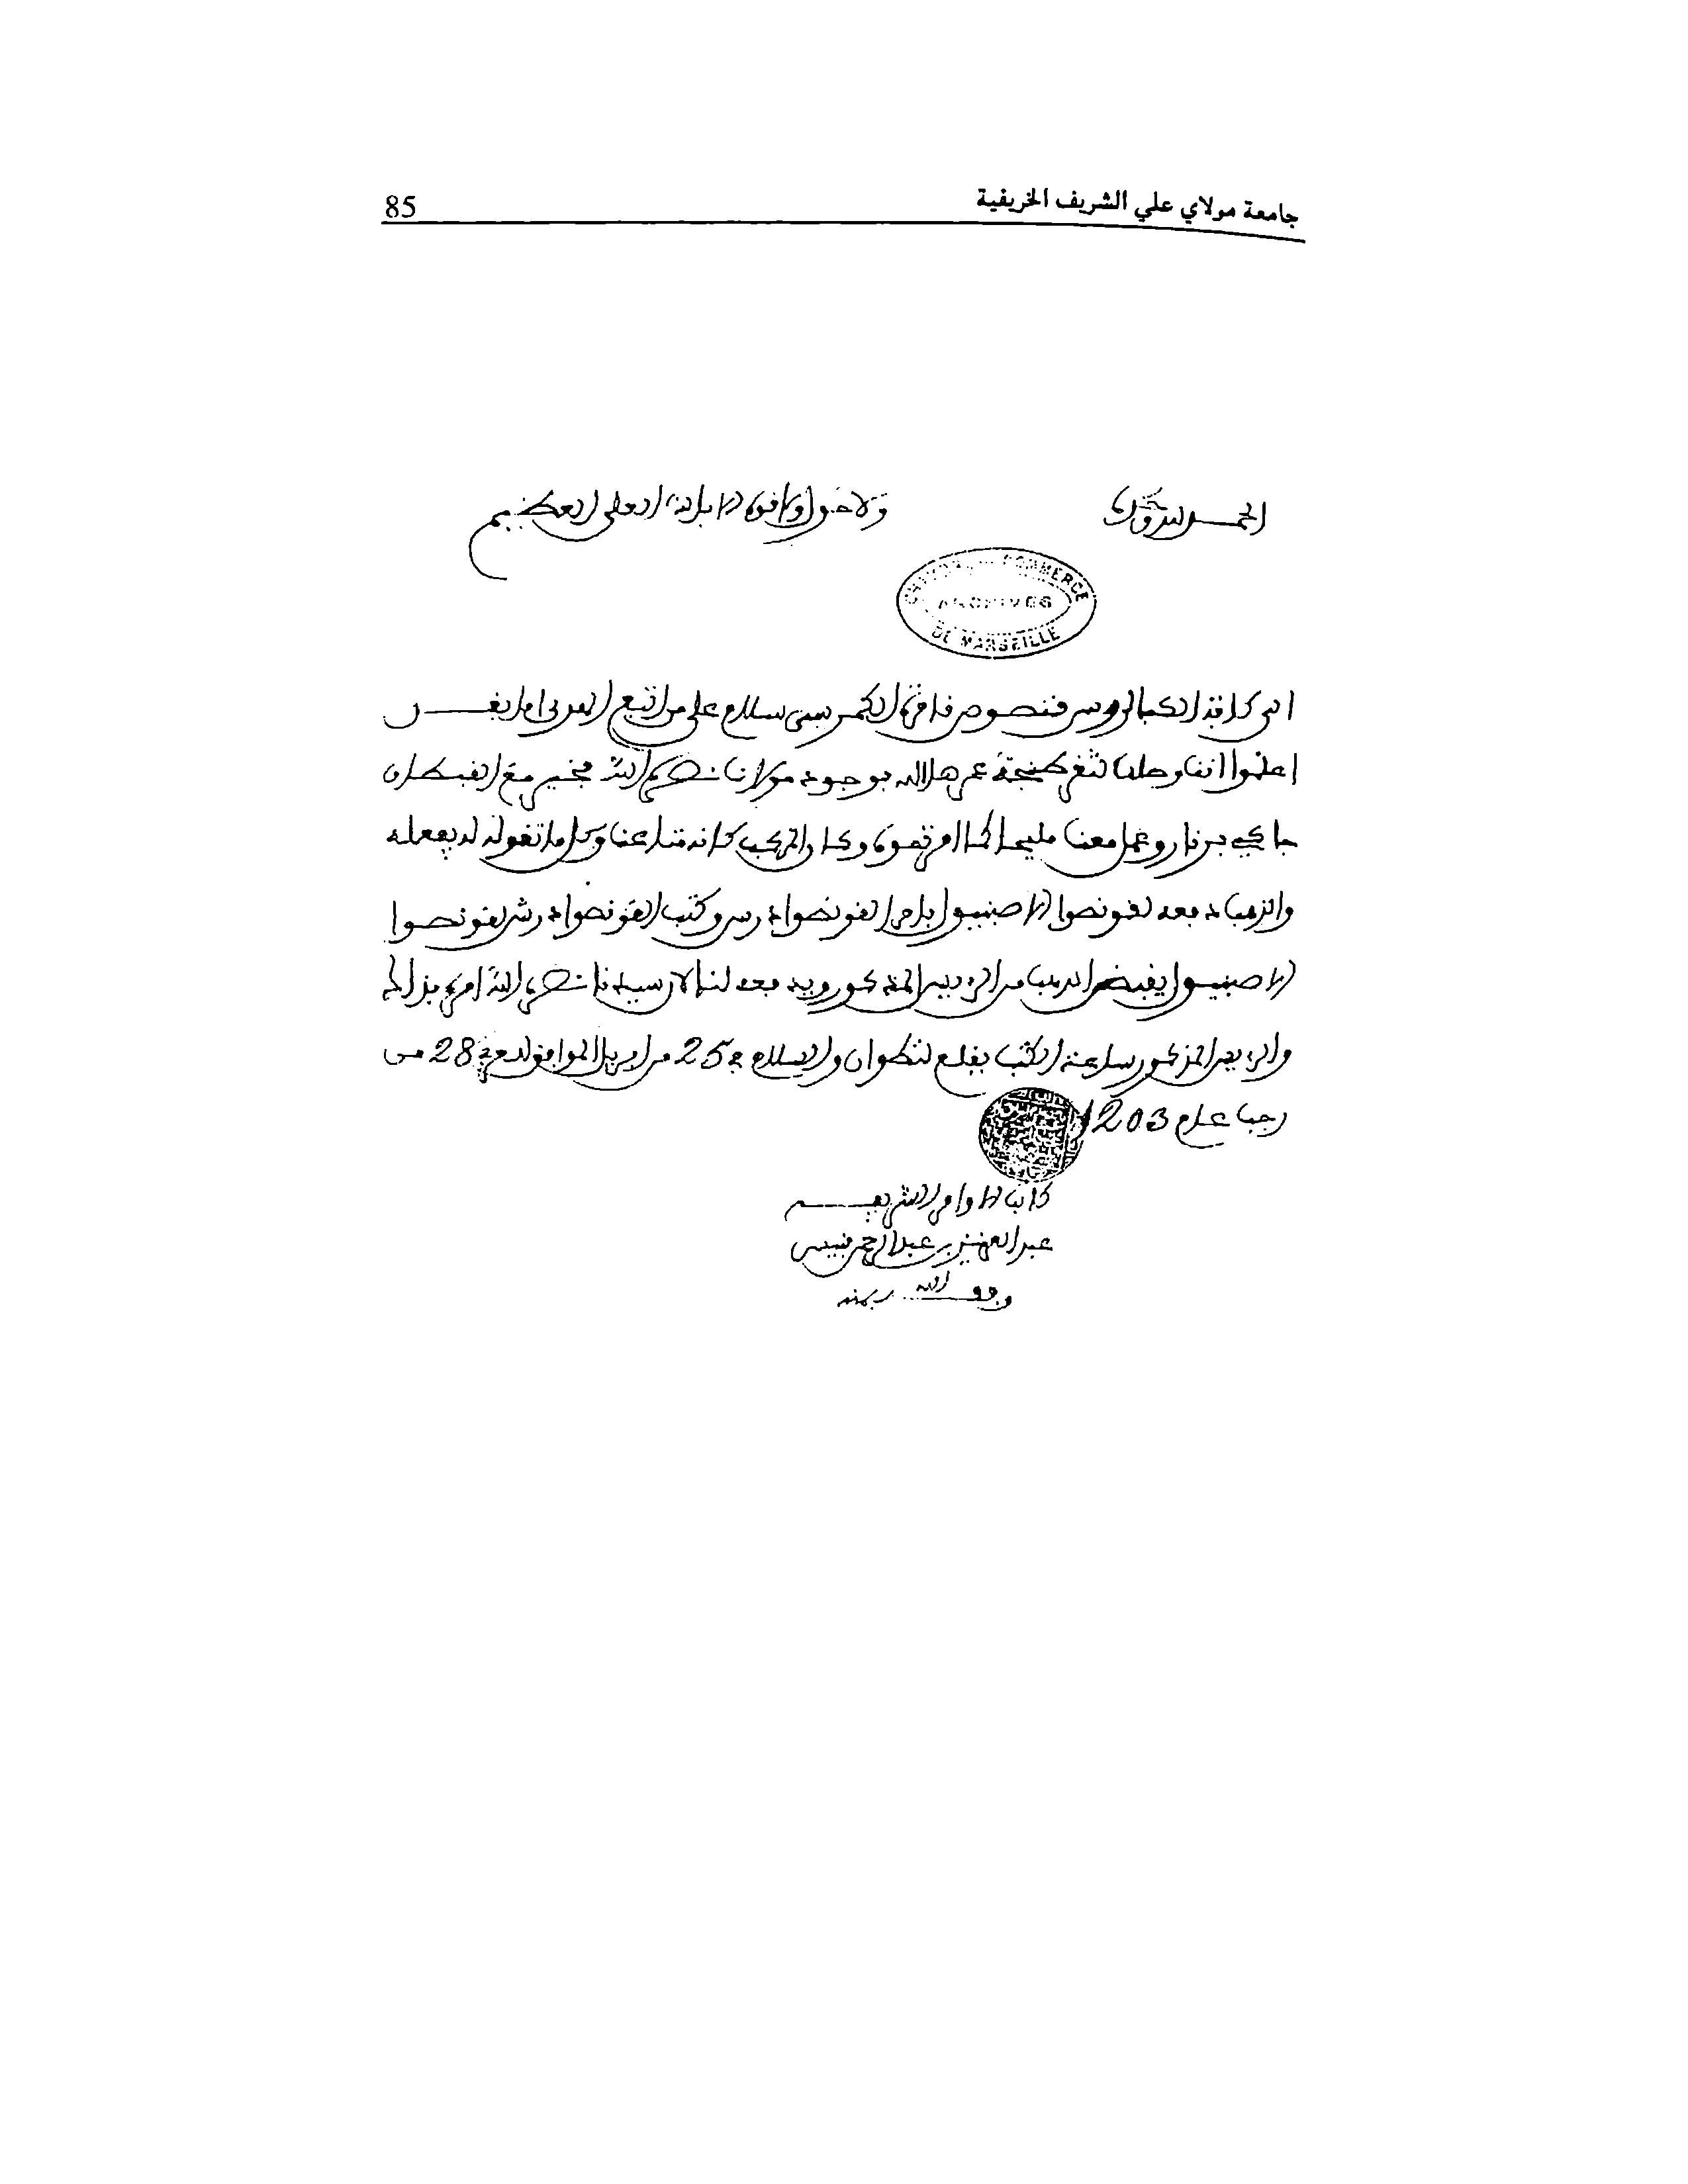 جامعة مولاي علي الشريف الخريفية 85
الحمد لله وحده
ولا حول ولا قوة الا بالله العلي العظيم
CHAMBRE DE COMMERCE
ARCHIVES
DE MARSEILLE
الى كافة الكبار قنصوص سلام على من اتبع الهدى اما بعد
اعلموا اننا وصلنا لثغر طنجة عمرها الله بوجود مولانا نصره الله بخير مع القبطان
جاكي برنارو وعمل معنا مليحا وكان المركب كانه متاعنا وكل ما نقوله له يفعله
والذهب دفعه لقونصوا الاصبنيول القونصوا وكتب القونصوا لقونصوا
الاصبنيول يقبض الذهب من الرييس المذكور ويدفعه لنا لان سيدنا نصره الله امره بذالك
والرييس المذكور ساعة الكتب يقلع لتطوان والسلام في 25 من ابريل الموافق لـ 28 من
رجب عام 1203
كاتب الاوامر الشريفة
عبد العزيز بن عبد الرحمن
وفقه الله بمنه